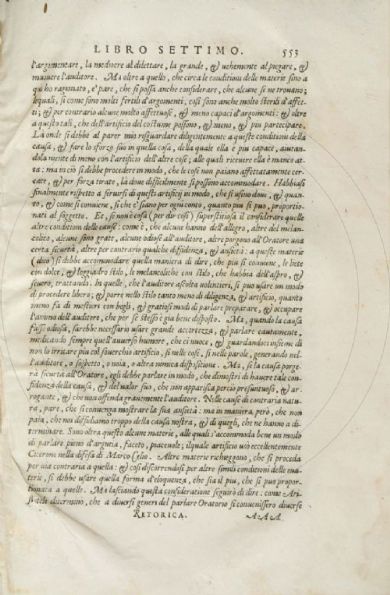 LIBRO SETTIMO. 553
l'argomentare, la mediocre al dilettare, la grande, & uehemente al piegare, &
muouere l'auditore. Ma oltre a quello, che circa le conditioni delle materie sino a
qui ho ragionato, e' pare, che si possa anche considerare, che alcune se ne trouano;
lequali, si come sono molti fertili d'argomenti, così sono anche molto sterili d'affet-
ti; & per contrario alcune molto affettuose, & meno capaci d'argomenti; & oltre
a queste tali, che dell'artificio del costume possono, & meno, & piu participare.
La onde si debbe al parer mio risguardare diligentemente a queste conditioni della
causa, & fare lo sforzo suo in quella cosa, della quale ella è piu capace, aiutan-
dola niente di meno con l'artificio dell'altre cose; alle quali riceuere ella è manco at-
ta: ma in ciò si debbe procedere in modo, che le cose non paiano affettatamente cer-
cate, & per forza tirate, là doue difficilmente si possono accommodare. Habbiasi
finalmente rispetto a seruirsi di questi artificij in modo, che si usino doue, & quan-
to, & come si conuiene, sì che e' siano per ogni conto, quanto piu si può, proportio-
nati al soggetto. Et, se non è cosa (per dir così) superstitiosa il considerare quelle
altre conditioni delle cause: come è, che alcune hanno dell'allegro, altre del melan-
colico, alcune sono grate, alcune odiose all'auditore, altre porgono all'Oratore una
certa sicurtà, altre per contrario qualche diffidenza, & ansietà: a queste materie
(dico) si debbe accommodare quella maniera di dire, che piu si conuiene, le liete
con dolce, & leggiadro stilo, le melancoliche con stilo, che habbia dell'aspro, &
seuero, trattando. In quelle, che l'auditore ascolta volentieri, si può usare un modo
di procedere libero, & porre nello stilo tanto meno di diligenza, & artificio, quanto
meno fa di mestieri con begli, & gratiosi modi di parlare preparare, & occupare
l'animo dell'auditore, che per se stesso è piu bene disposto. Ma, quando la causa
fusse odiosa, sarebbe necessario usare grande accortezza, & parlare cautamente,
medicando sempre quell'auuerso humore, che ci nuoce, & guardandoci insieme di
non lo irritare piu col souerchio artificio, sì nelle cose, sì nelle parole, generando nel-
l'auditore, o sospetto, o noia, o altra nimica dispositione. Ma, se la causa porge-
rà sicurtà all'Oratore, egli debbe parlare in modo, che dimostri di hauere tale con-
fidenza della causa, & del ualor suo, che non apparisca perciò presuntuoso, & ar-
rogante, & che non offenda grauemente l'auditore. Nelle cause di contraria natu-
ra, pare, che si conuenga mostrare la sua ansietà: ma in maniera, però, che non
paia, che noi diffidiamo troppo della causa nostra, & di quegli, che ne hanno a de-
terminare. Sono oltra questo alcune materie, alle quali s'accommoda bene un modo
di parlare pieno d'argutia, faceto, piaceuole; ilquale artificio usò eccellentemente
Cicerone nella difesa di Marco Celio. Altre materie richieggono, che si proceda
per una contraria a quella: & così discorrendosi per altre simili conditioni delle ma-
terie, si debbe usare quella forma d'eloquenza, che sia il piu, che si può propor-
tionata a quelle. Ma lasciando questa consideratione seguirò di dire: come Ari-
stotele discernono, che a diuersi generi del parlare Oratorio si conuenissero diuerse
RETORICA. AAA.